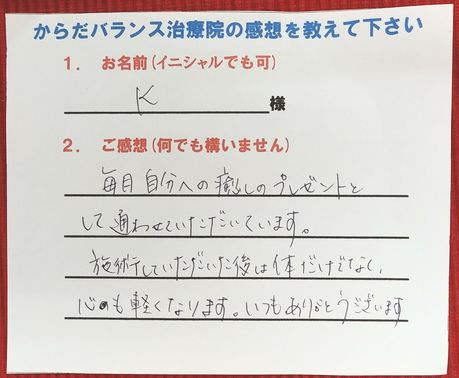 からだバランス治療院の感想を教えて下さい
1. お名前(イニシャルでも可)
K 様
2. ご感想(何でも構いません)
毎月自分への癒しのプレゼントと
して通わせていただいています。
施術していただいた後は体だけでなく、
心も軽くなります。いつもありがとうございます